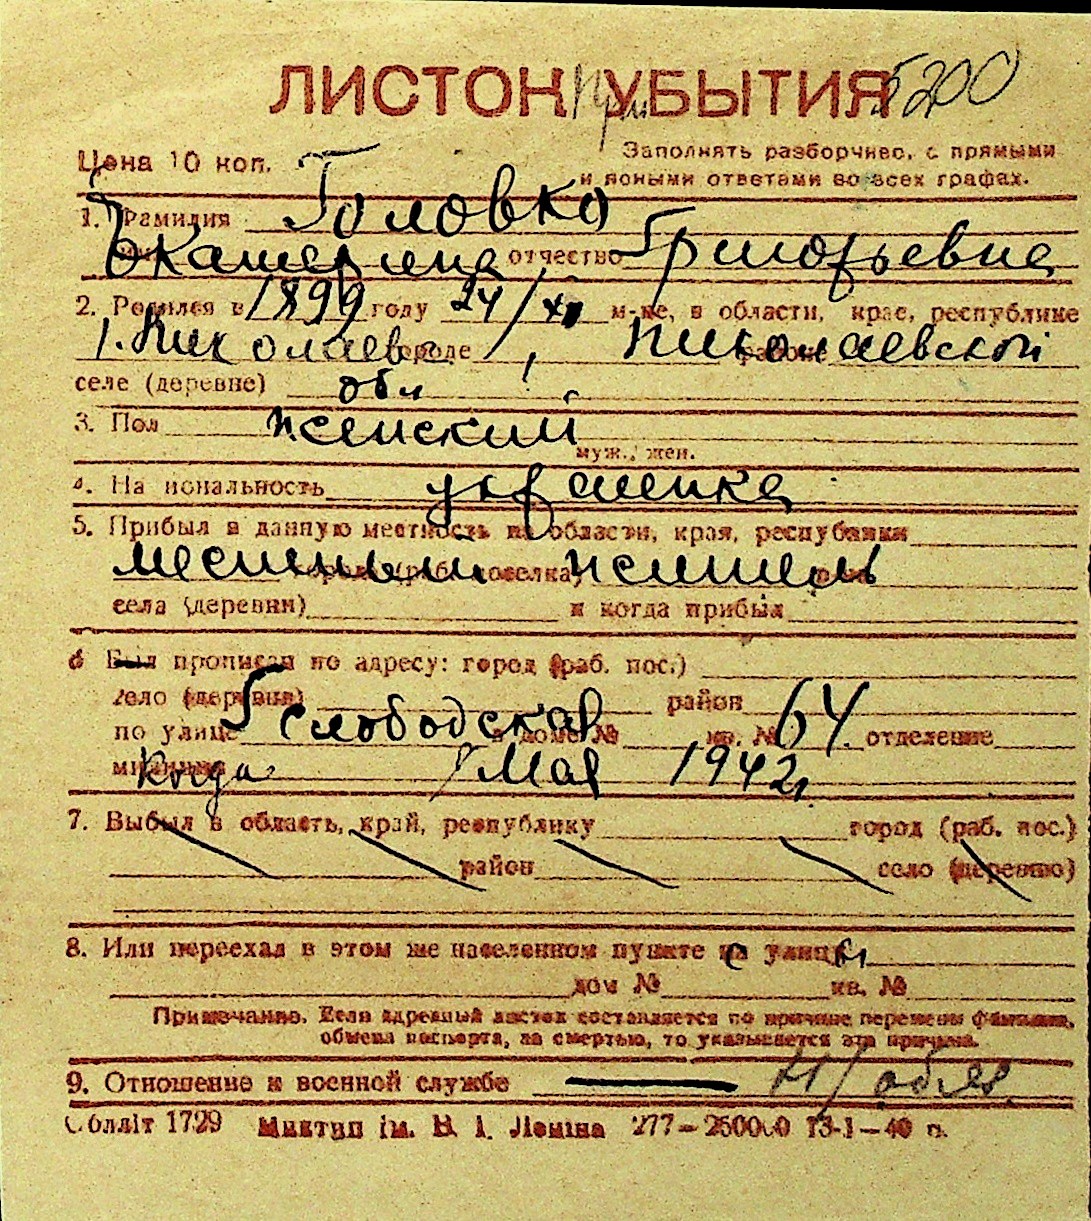 ЛИСТОК УБЫТИЯ 5200
Цена 10 коп. Заполнять разборчиво, с прямыми
и ясными ответами во всех графах.
1. Фамилия Головко
Екатерина отчество Григорьевна
2. Родился в 1899 году 24/XII м-це, в области, крае, республике
г. Николаеве городе, районе Николаевской
селе (деревне) обл
3. Пол женский
муж., жен.
4. Национальность украинка
5. Прибыл в данную местность из области, края, республики
города (раб. поселка) местный житель
села (деревни) и когда прибыл
6 Был прописан по адресу: город (раб. пос.)
село (деревня) район
по улице 5 Слободская в доме № кв. № 64 отделение
милиции Когда 8 Мая 1942г
7. Выбыл в область, край, республику город (раб. пос.)
район село (деревню)
8. Или переехал в этом же населенном пункте с улицы
дом № кв. №
Примечание. Если адресный листок составляется по причине перемены фамилии,
обмена паспорта, за смертью, то указывается эта причина.
9. Отношение к военной службе Н/обяз.
Облліт 1729 Миктип ім. В. І. Леніна 277—250000 13-1—40 р.